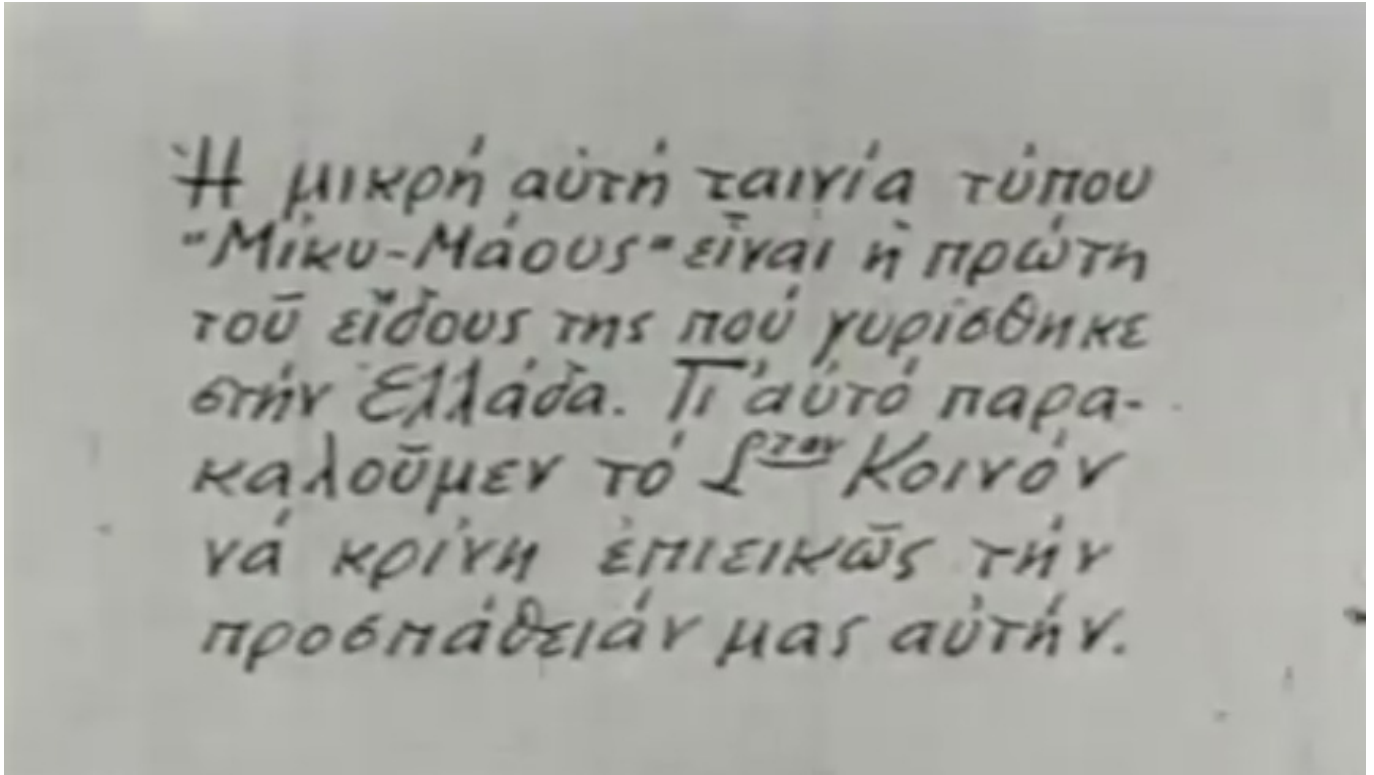 Ἡ μικρή αὐτή ταινία τύπου
"Μίκυ-Μάους" εἶναι ἡ πρώτη
τοῦ εἴδους της πού γυρίσθηκε
στήν Ἑλλάδα. Γι' αὐτό παρα-
καλοῦμεν τό Σ<sup>τον</sup> Κοινόν
νά κρίνη ἐπιεικῶς τήν
προσπάθειάν μας αὐτήν.